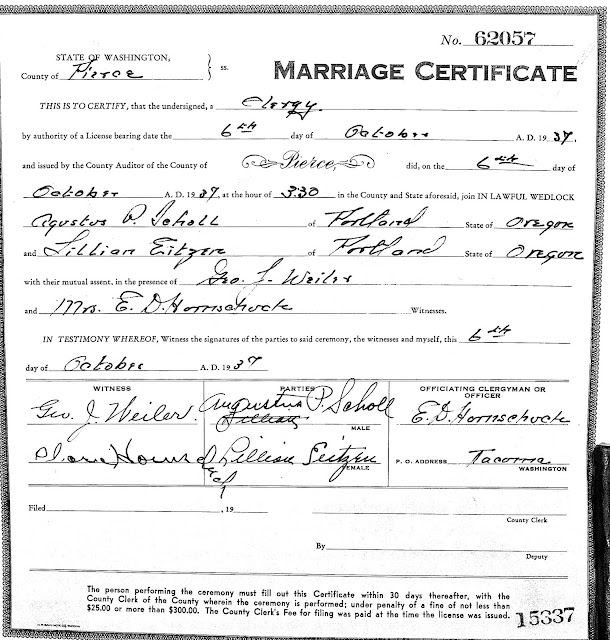 No. 62057
STATE OF WASHINGTON,
County of Pierce } ss.
MARRIAGE CERTIFICATE
THIS IS TO CERTIFY, that the undersigned, a Clergy.
by authority of a License bearing date the 6th day of October A. D. 1937.
and issued by the County Auditor of the County of Pierce, did, on the 6th day of
October A. D. 1937, at the hour of 3:30 in the County and State aforesaid, join IN LAWFUL WEDLOCK
Agustus P. Scholl of Portland State of Oregon
and Lillian Eitzen of Portland State of Oregon
with their mutual assent, in the presence of Geo. J. Weiler
and Mrs. E. D. Hornschuck Witnesses.
IN TESTIMONY WHEREOF, Witness the signatures of the parties to said ceremony, the witnesses and myself, this 6th
day of October A. D. 1937
WITNESS PARTIES OFFICIATING CLERGYMAN OR OFFICER
Geo. J. Weiler. Augustus P. Scholl E. D. Hornschuck
Lillian
MALE
Lillian Seitzen P. O. ADDRESS Tacoma
FEMALE WASHINGTON
Filed , 19
County Clerk
By
Deputy
The person performing the ceremony must fill out this Certificate within 30 days thereafter, with the
County Clerk of the County wherein the ceremony is performed; under penalty of a fine of not less than
$25.00 or more than $300.00. The County Clerk's Fee for filing was paid at the time the license was issued.
15337